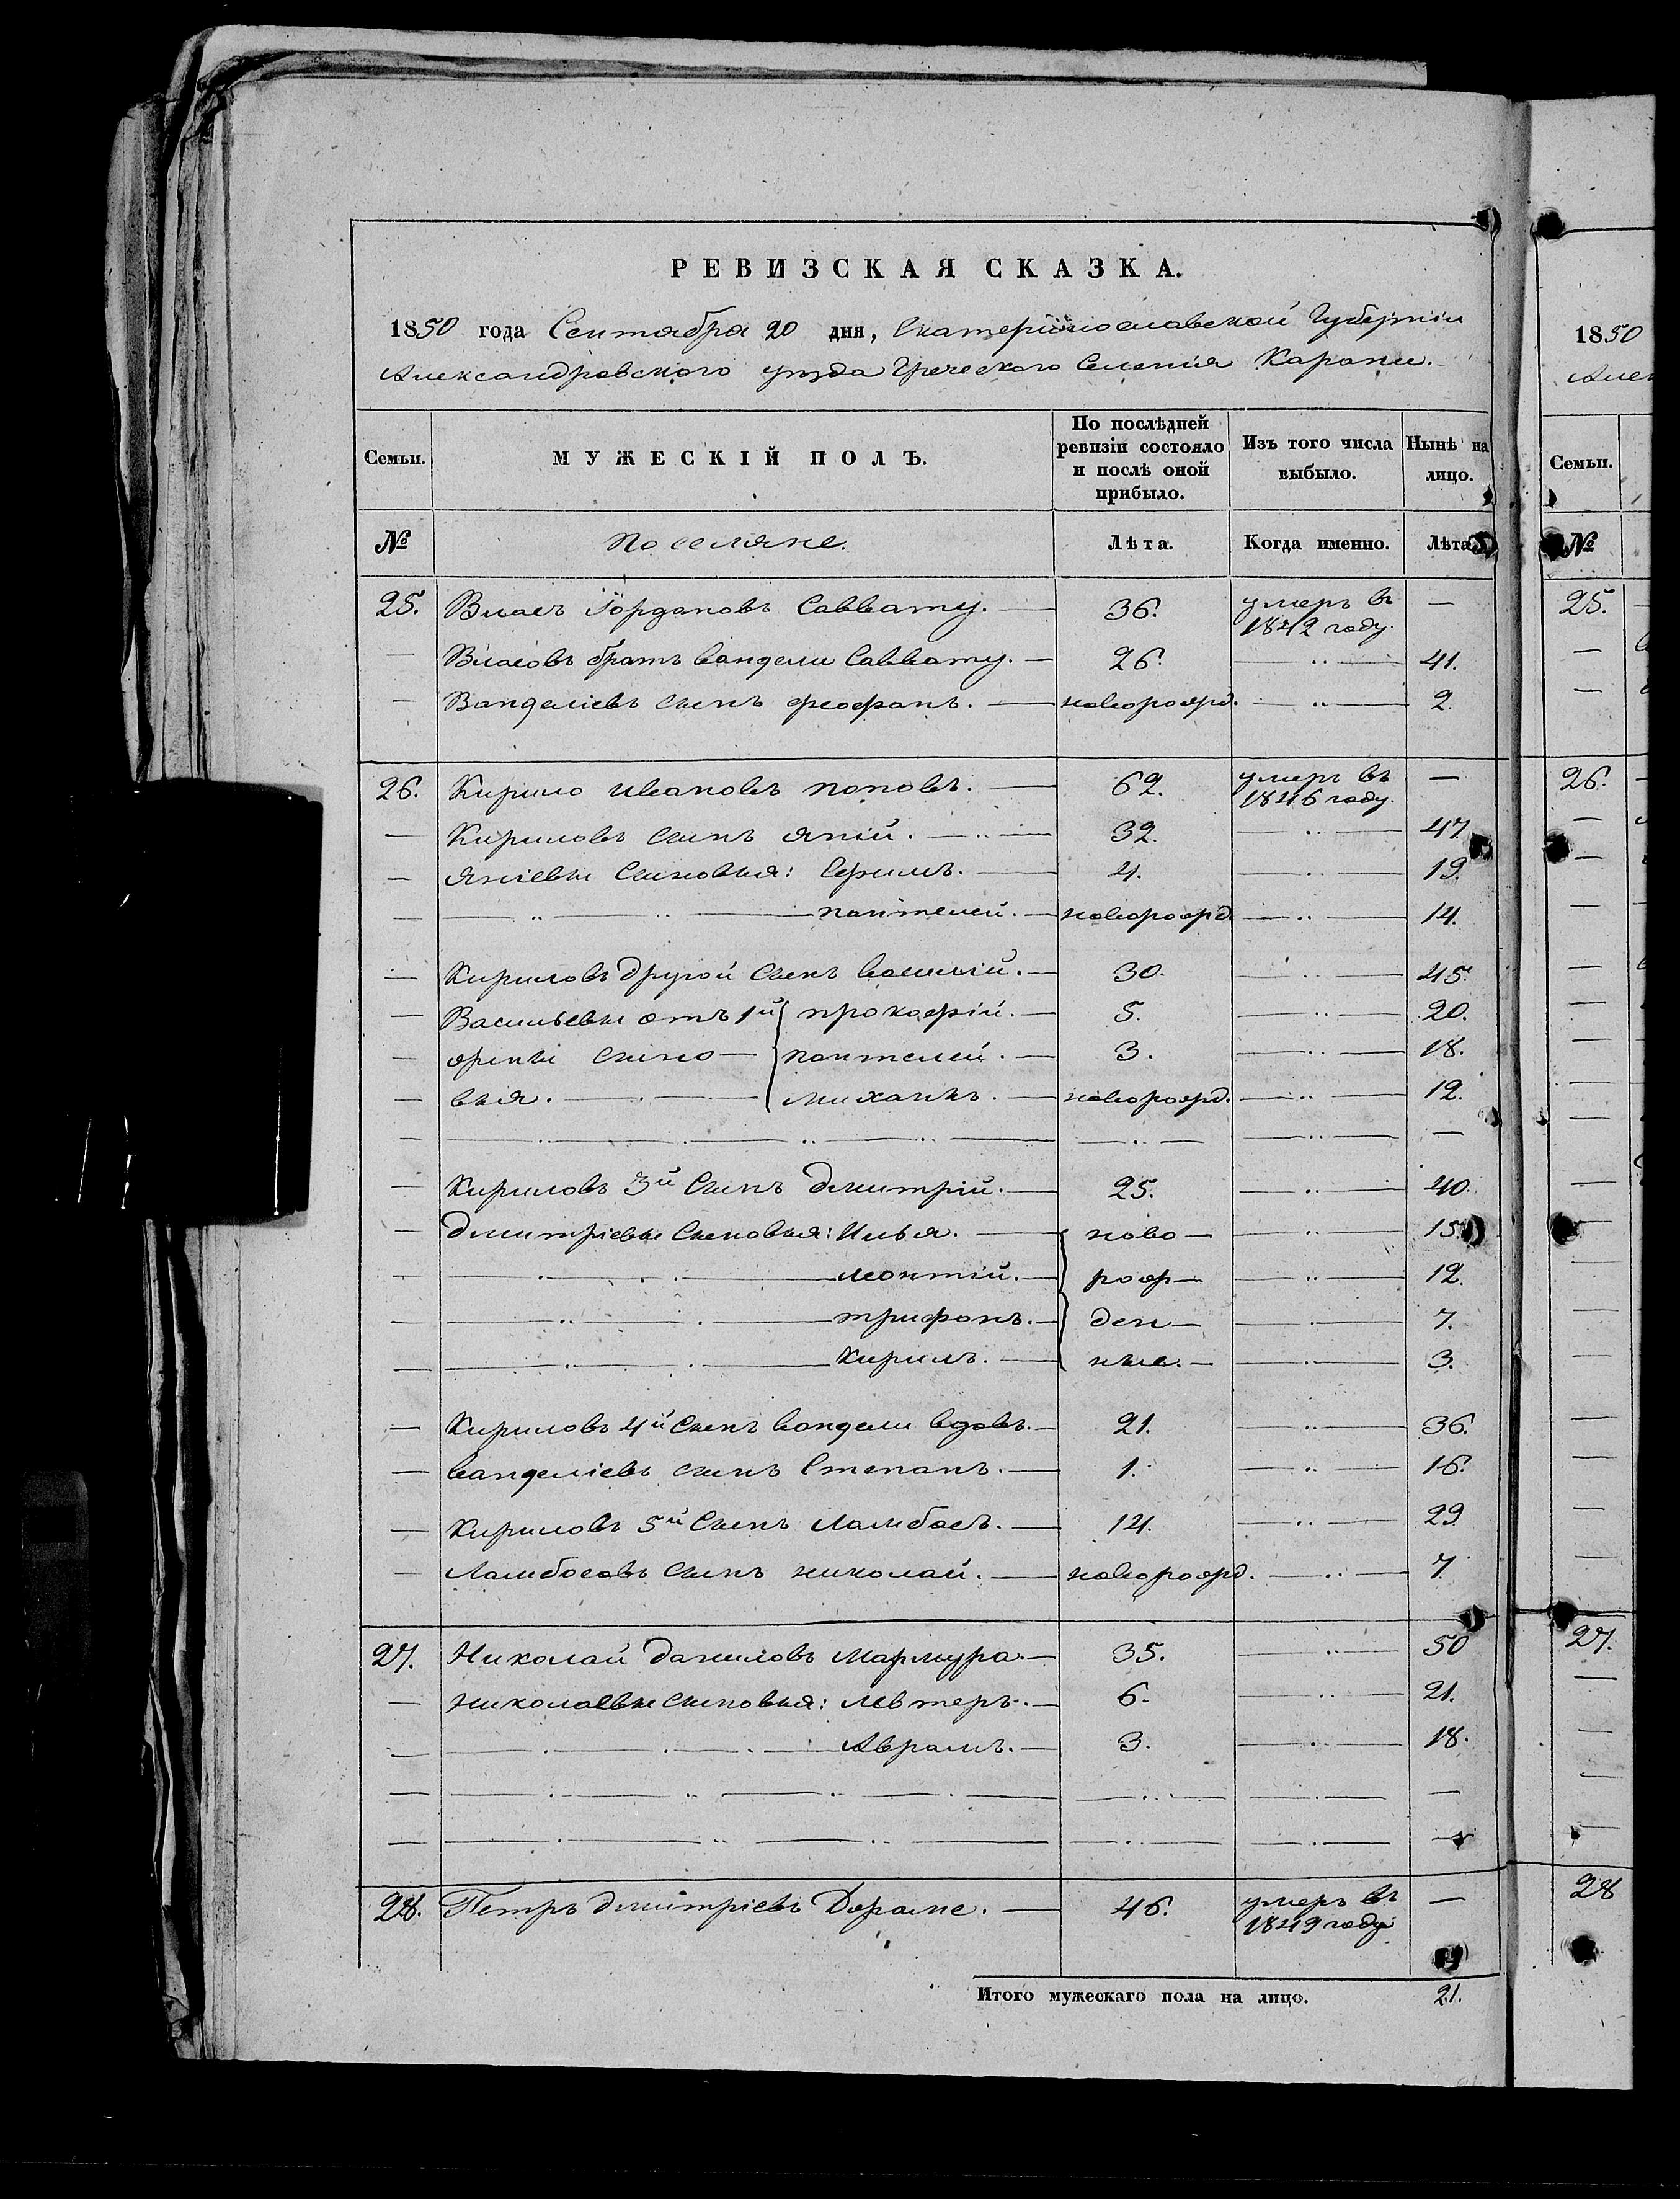 РЕВИЗСКАЯ СКАЗКА.
1850 года Сентября 20 дня, Екатеринославской Губерніи
Александровского уезда Греческого Селенія Карани.
Семьи. МУЖЕСКІЙ ПОЛЪ. По послѣдней ревизіи состояло и послѣ оной прибыло. Изъ того числа выбыло. Нынѣ на лицо.
№ Поселяне. Лѣта. Когда именно. Лѣта
25. Власъ Іордановъ Саввату. — 36. умеръ въ 1842 году. —
— Власовъ братъ Вандели Саввату. — 26. — „ — 41.
— Ванделіевъ сынъ Феофанъ. — новорожд. — „ — 2.
26. Кирило Ивановъ Поповъ. — 62. умеръ въ 1846 году. —
— Кириловъ сынъ Яній. — „ — 32. — „ — 47.
— Яніевы Сыновья: Сѣримъ. — 4. — „ — 19.
— — „ — „ — пантелей. — новорожд — „ — 14.
— Кириловъ другой сынъ Василій. — 30. — „ — 45.
— Васильевы отъ 1й прокофій. — 5. — „ — 20.
— жены сыно— пантелей. — 3. — „ — 18.
— вья. — михаилъ. — новорожд. — „ — 12.
— — „ — „ — „ — — „ — — „ — —
— Кириловъ 3й Сынъ Дмитрій. — 25. — „ — 40.
— Дмитріевы Сыновья: Илья. — ново — — „ — 15.
— — „ — леонтій. — рож — — „ — 12.
— — „ — трифонъ. — ден — — „ — 7.
— — „ — Кирилъ. — ные. — — „ — 3.
— Кириловъ 4й Сынъ Вандели вдовъ. — 21. — „ — 36.
— Ванделіевъ сынъ Степанъ. — 1. — „ — 16.
— Кириловъ 5й Сынъ Ламбосъ. — 14. — „ — 29
— Ламбосовъ сынъ николай. — новорожд. — „ — 7.
27. Николай Даниловъ Мармура. — 35. — „ — 50
— николаевы сыновья: левтеръ. — 6. — „ — 21.
— — „ — Аврамъ. — 3. — „ — 18.
— — „ — „ — „ — — „ — — „ — —
— — „ — „ — „ — — „ — — „ — —
28. Петръ Дмитріевъ Дораме. — 46. умеръ въ 1849 году —
Итого мужескаго пола на лицо. 21.
1850
Алек
Семьи.
№
25.
26.
27.
28